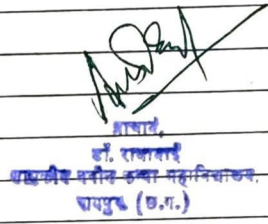 प्राचार्य,
डॉ. राधाबाई
शासकीय नवीन कन्या महाविद्यालय,
रायपुर (छ.ग.)